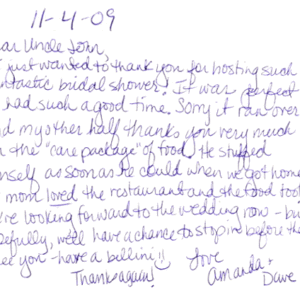 11-4-09
ar Uncle John,
just wanted to thank you for hosting such
ntastic bridal shower! It was perfect
had such a good time. Sorry it ran over
d my other half thanks you very much
r the "care package" of food. He stuffed
mself as soon as he could when we got home
mom loved the restaurant and the food too!
're looking forward to the wedding now - bu
pefully, we'll have a chance to stop in before the
ee you - have a bellini!
Love
Thanks again! Amanda +
Dave